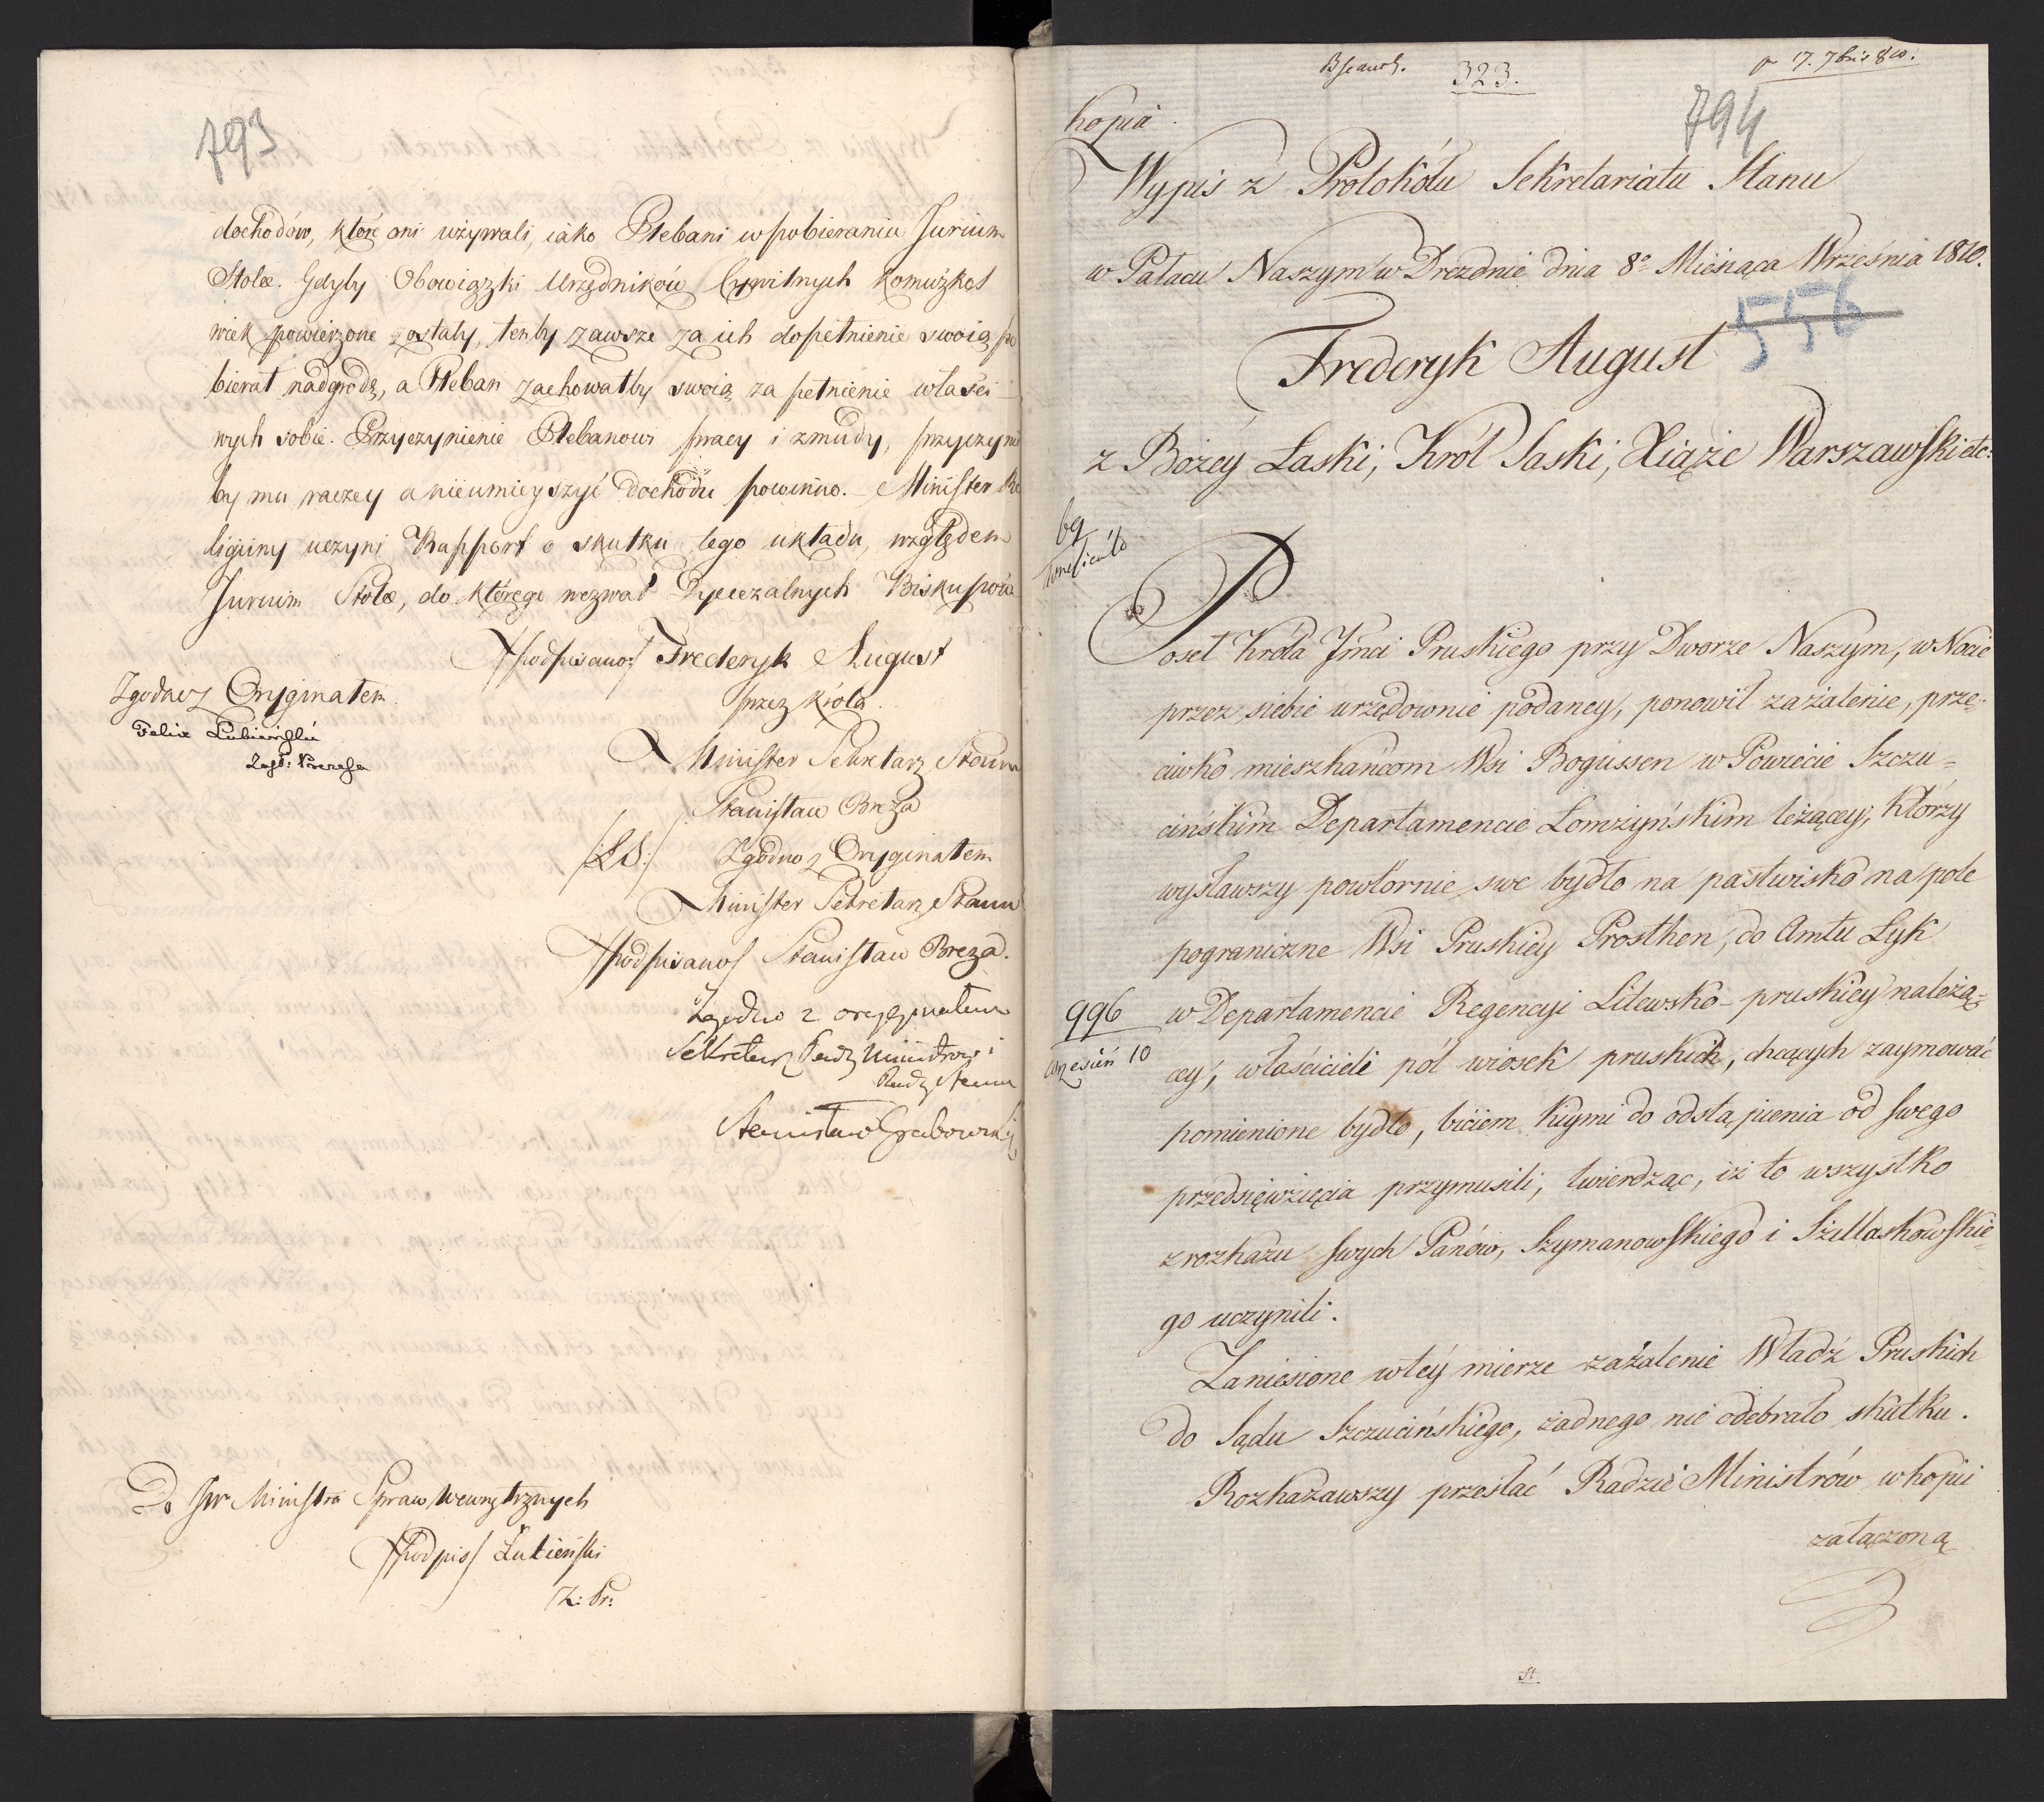 793
dochodów, które oni używali, iako Plebani w pobieraniu Jurium
Stolæ. Gdyby Obowiązki Urzędników Cywilnych komużkol
wiek powierzone zostały, tenby zawsze za ich dopełnienie swoią po
bierał nadgrodę, a Pleban zachowałby swoią za pełnienie właści
wych sobie. Przyczynienie Plebanowi pracy i zmudy, przyczynić
by mu raczey a nieumieyszyć dochodu powinno. Minister Re
ligiiny uczyni Rapport o skutku tego układu, względem
Jurium Stolæ, do którego wezwał Dyecezalnych Biskupów
/podpisano/ Frederyk August
przez Króla.
Minister Sekretarz Stanu
Stanisław Breza
/:LS:/ Zgodno z Oryginałem
Minister Sekretarz Stanu
/podpisano/ Stanisław Breza.
Zgodno z oryginałem
Sekretarz Rady Ministrow i
Rady Stanu
Stanisław Grabowski
Zgodno z Oryginałem
Felix Lubieński
Zast: Prezesa
Do JW Ministra Spraw Wewnętrznych
/podpis/ Łubieński
Z: Pr:
323.
p 17. 7bris 810.
794
kopia
Wypis z Protokółu Sekretariatu Stanu
w Pałacu Naszym w Dreznie dnia 8º Miesiąca Września 1810.
556
Frederyk August
z Bożey Łaski, Król Saski, Xiąże Warszawski etc:
Poseł Króla Jmci Pruskiego przy Dworze Naszym, w Nocie
przez siebie urzędownie podaney, ponowił zażalenie, prze-
ciwko mieszkańcom Wsi Bogussen w Powiecie Szczu=
cińskim Departamencie Łomżyńskim leżącey, którzy
wysławszy powtórnie swe bydło na pastwisko na pole
pograniczne Wsi Pruskiey Prosthen, do Amtu Lyk
w Departamencie Regencyi Litewsko-pruskiey należą=
cey, właścicieli pól wiosek pruskich, chcących zaymować
pomienione bydło, biciem kiymi do odstąpienia od swego
przedsięwzięcia przymusili, twierdząc, iż to wszystko
z rozkazu swych Panów, Szymanowskiego i Szillaskowskie=
go uczynili.
996
Wrzesień 10
Zaniesione w tey mierze zażalenie Władz Pruskich
do Sądu Szczucińskiego, żadnego nie odebrało skutku.
Rozkazawszy przesłać Radzie Ministrów w kopii
załączoną